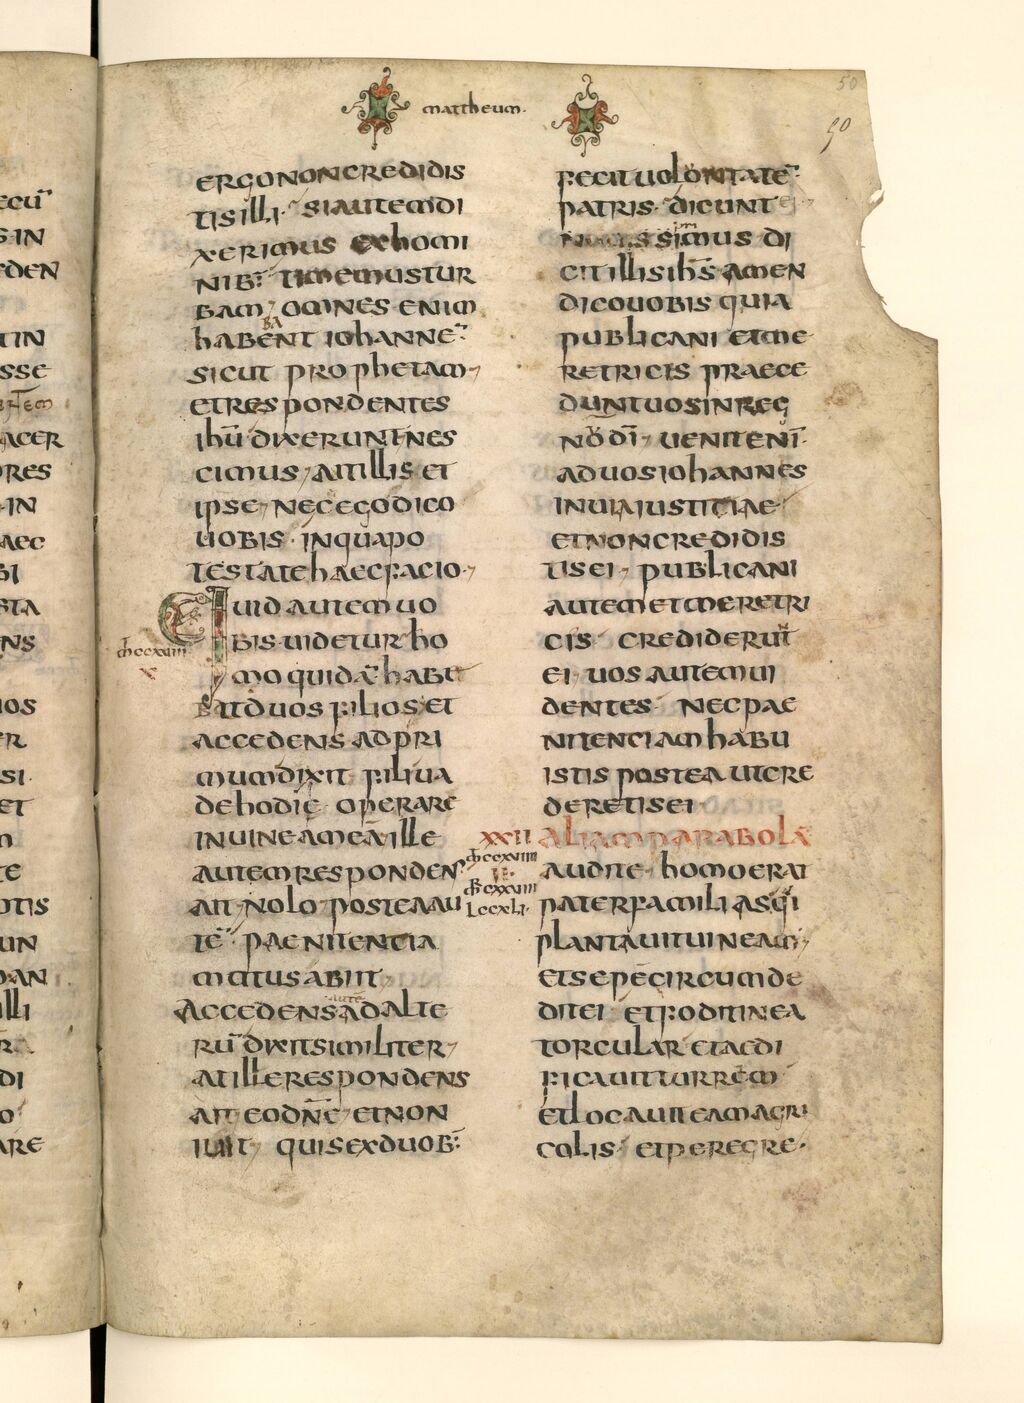 mattheum.
50
50
ERGONONCREDIDIS
TISILLI· SIAUTEMDI
XERIMUS EXHOMI
NIB: TIMEMUSTUR
BAM, OMNES ENIM
BA
HABENT IOHANNE̅
SICUT PROPHETAM,
ETRESPONDENTES
IHU̅ DIXERUNT NES
CIMUS, AITILLIS ET
IPSE, NECEGODICO
UOBIS· INQUAPO
TESTATEHAECFACIO·,
QUID AUTEM UO
BIS UIDETUR HO
MO QUIDA̅ HABE
BATDUOS FILIOS ET
ACCEDENS ADPRI
MUMDIXIT FILIUA
DEHODIE OPERARE
INUINEAMEA ILLE
AUTEMRESPONDENS
AIT, NOLO, POSTEAAU
TE̅· PAENITENTIA
MOTUSABIIT,
aute̅
ACCEDENSADALTE
RU̅ DIXITSIMILITER,
ATILLERESPONDENS
AIT EODN̅E, ETNON
IUIT, QUISEXDUOB:
FECITUOLONTATE̅
PATRIS· DICUNT EI
NOUISSIMUS DI
CITILLISIHS̅ AMEN
DICOUOBIS QUIA
PUBLICANI ETME
RETRICIS PRAECE
DUNTUOSINREG
NO DI̅, UENITENI̅
ADUOSIOHANNES
INUIAIUSTITIAE
ETNONCREDIDIS
TISEI, PUBLICANI
AUTEMETMERETRI
CIS CREDIDERUT
EI UOS AUTEMUI
DENTES NECPAE
NITENCIAMHABU
ISTIS POSTEA UTCRE
DERETISEI·
XXII ALIAMPARABOLA̅
AUDITE· HOMOERAT
PATERFAMILIASQI
PLANTAUITUINEAM·,
ETSEPE̅CIRCUMDE
DITEI ETFODITINEA
TORCULAR ETAEDI
FICAUITTURREM
ETLOCAUITEAMAGRI
COLIS· ETPEREGRE·